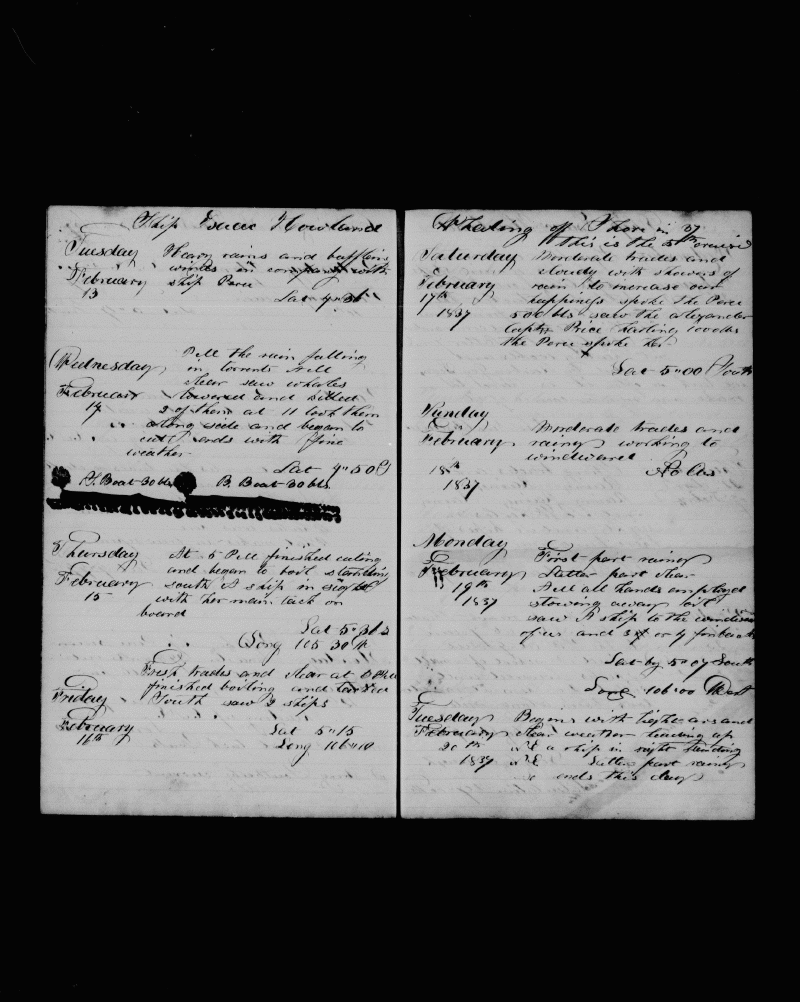 Ship Isaac Howland
Tuesday Heavy rains and baffling
winds in company with
February ship Peru
13
Lat 4"36
Wednesday, Still the rain falling
in torrents Still
steer saw whales
February lowered and killed
14 2 of them at 11 took them
along side and began to
cut ends with fine
weather
Lat 4"50
S. Boat 30 bls B. Boat 30 bls
Thursday At 5 PM finished cuting
and began to boil standing
February south A ship in sight
15 with her main tack on
board
Lat 5"36 S
Long 105 30 W
Fresh trades and clear at
finished boiling and
Friday South saw 2 ships
February Lat 5"15
16th Long 106"10
Whaling off Shore in 37
this is the 5th cruise
Saturday Moderate trades and
cloudy with showers of
February rain to increase our
17th happiness spoke the Peru
1837 500 bls saw the Alexander
Captn Price hailing 1000 bls
the Peru spoke her
Lat 5"00 South
Sunday
Moderate trades and
February, rainy working to
windward
18th No Obs
1837
Monday
First part rainy
February, Latter part clear
19th Still all hands employed
1837 stowing away oil
saw A ship to the windward
of us and 3 or 4 finbacks
Lat by 5"07 South
Long 106"00 West
Tuesday Begins with light airs and
February clear weather heading up
20th N E a ship in sight standing
1837 N E Latter part rainy
& ends this day